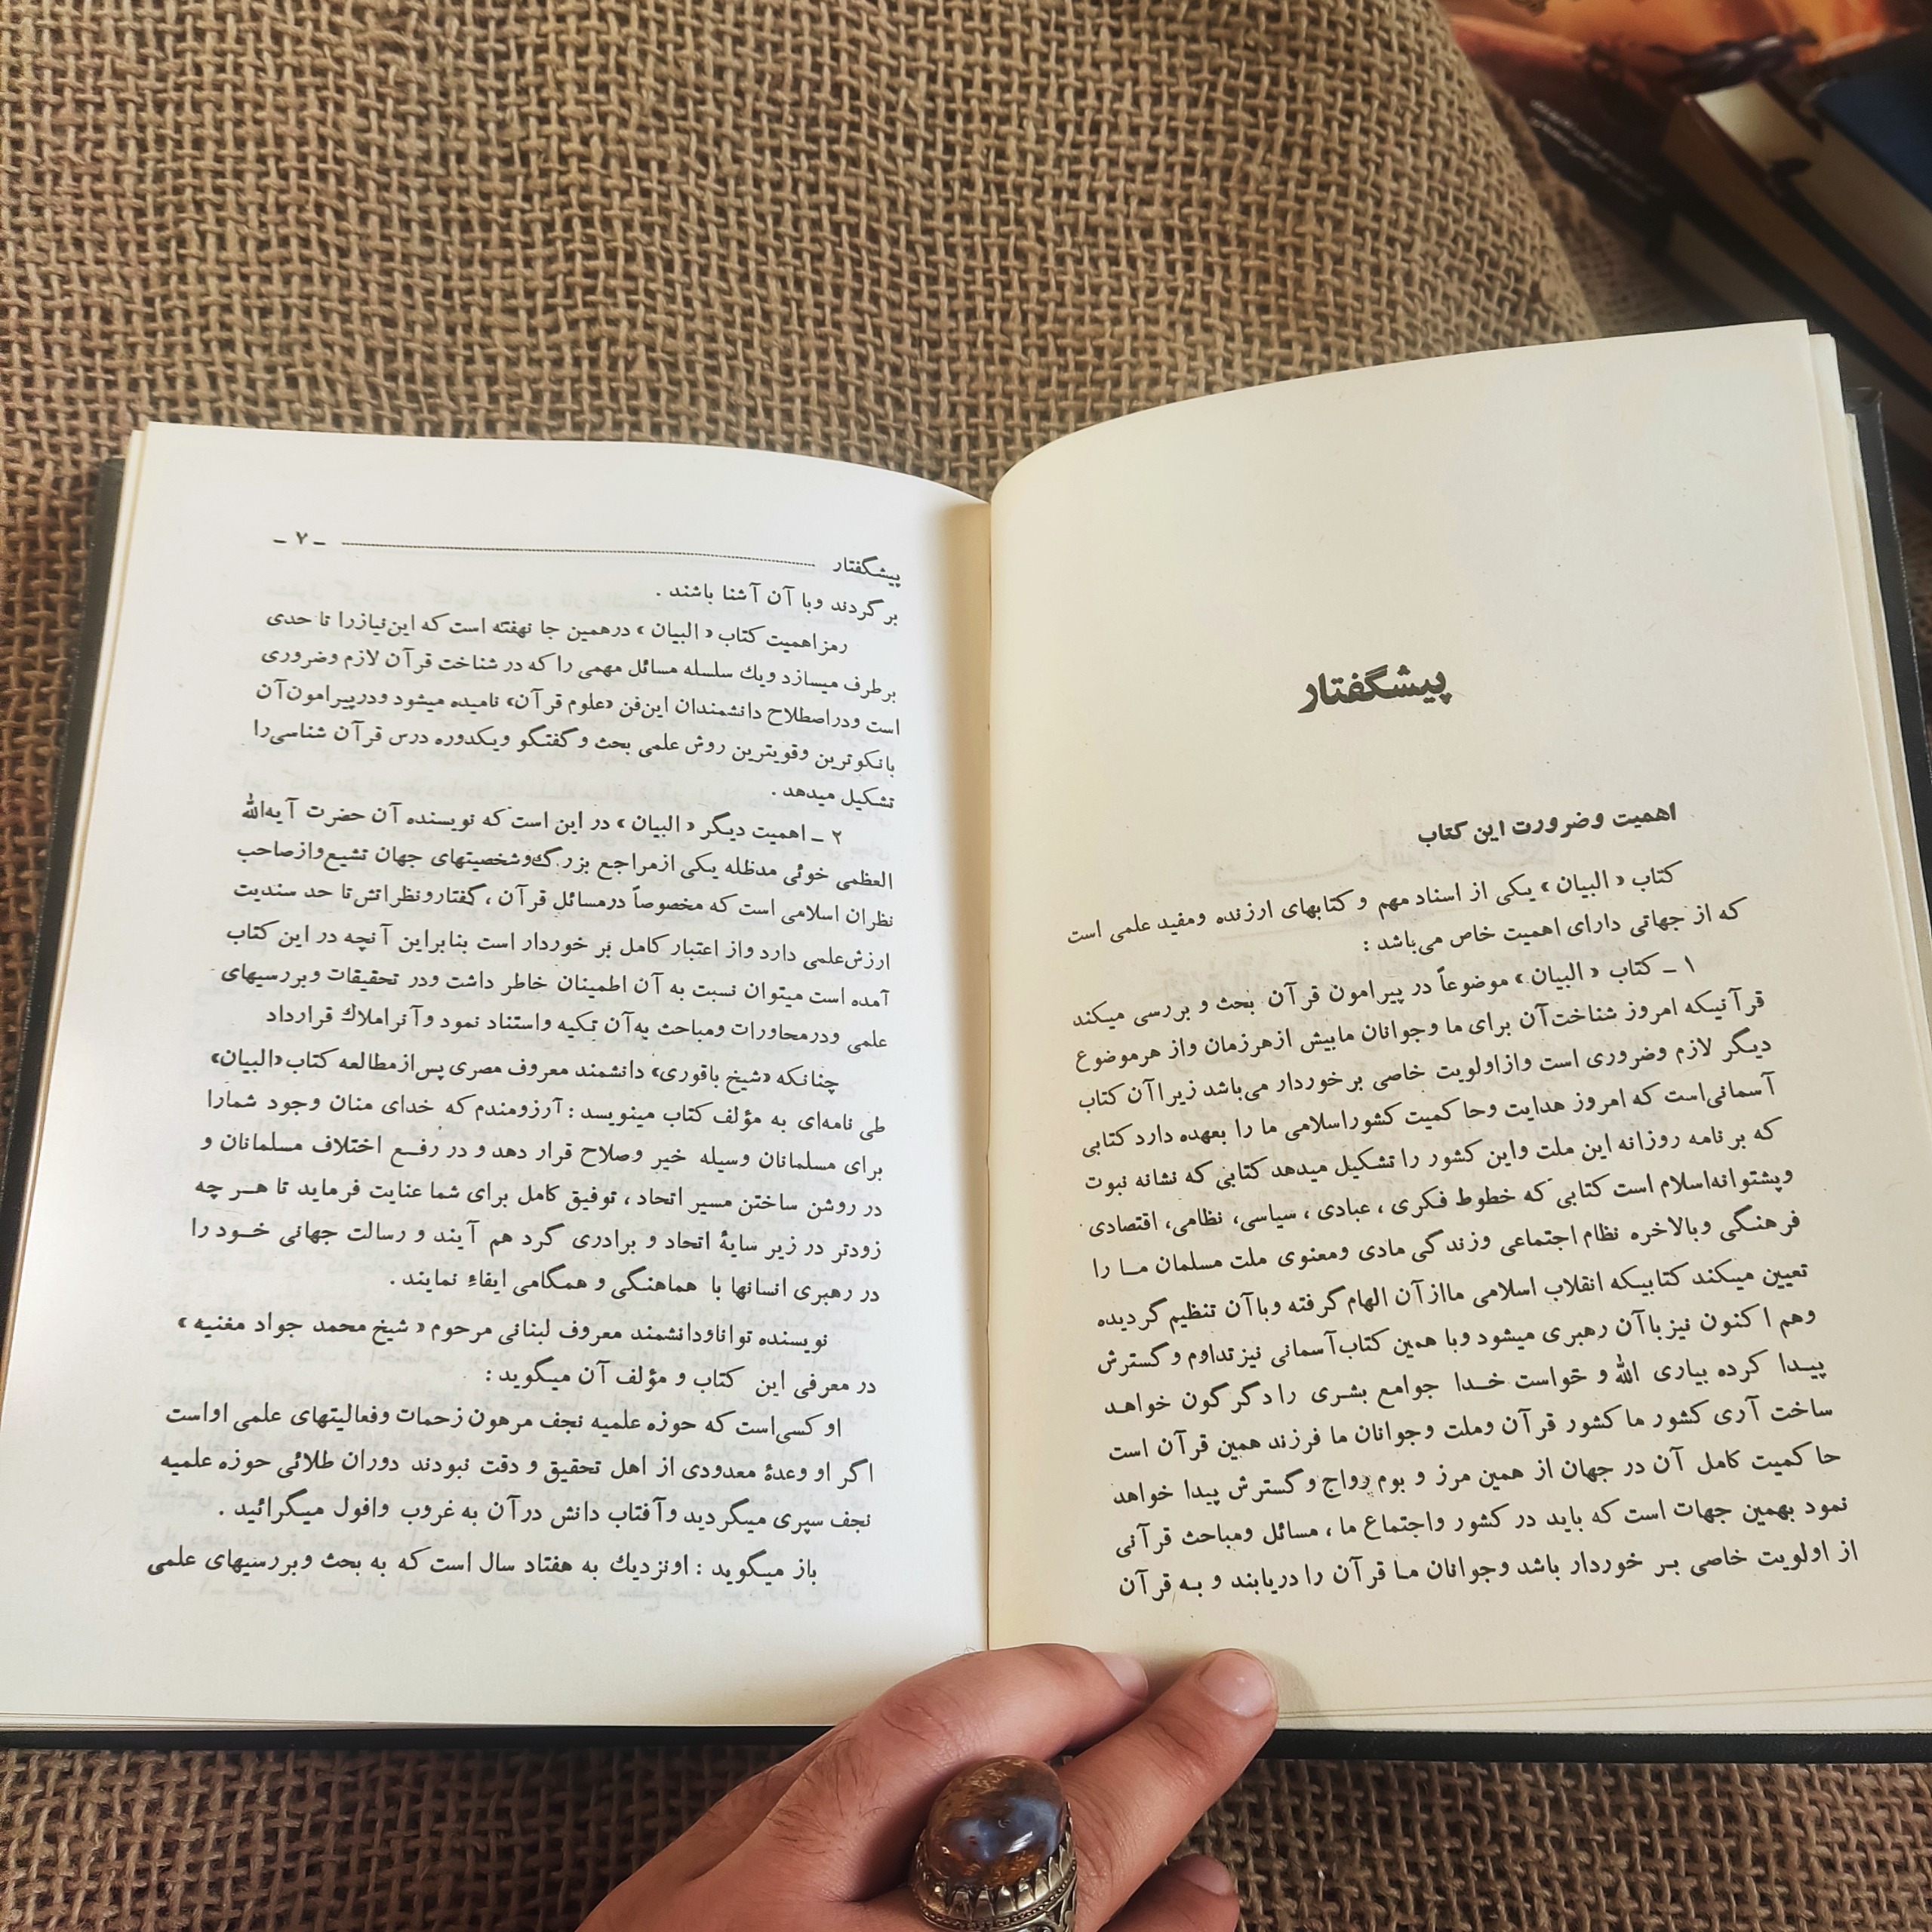 پیشگفتار
اهمیت وضرورت این کتاب
کتاب «البیان» یکی از اسناد مهم و کتابهای ارزنده ومفید علمی است
که از جهاتی دارای اهمیت خاص می‌باشد :
۱ ــ کتاب «البیان» موضوعاً در پیرامون قرآن بحث و بررسی میکند
قرآنیکه امروز شناخت‌آن برای ما وجوانان مابیش ازهرزمان واز هرموضوع
دیگر لازم وضروری است وازاولویت خاصی برخوردار می‌باشد زیراآن کتاب
آسمانی‌است که امروز هدایت وحاکمیت کشوراسلامی ما را بعهده دارد کتابی
که برنامه روزانه این ملت واین کشور را تشکیل میدهد کتابی که نشانه نبوت
وپشتوانه‌اسلام است کتابی که خطوط فکری ، عبادی ، سیاسی، نظامی، اقتصادی
فرهنگی وبالاخره نظام اجتماعی وزندگی مادی ومعنوی ملت مسلمان مـا را
تعیین میکند کتابیکه انقلاب اسلامی ماازآن الهام گرفته وباآن تنظیم گردیده
وهم اکنون نیزباآن رهبری میشود وبا همین کتاب‌آسمانی نیزتداوم وگسترش
پیـدا کرده بیاری الله و خواست خـدا جوامع بشری را دگرگون خواهـد
ساخت آری کشور ما کشور قرآن وملت وجوانان ما فرزند همین قرآن است
حاکمیت کامل آن در جهان از همین مرز و بوم رواج وگسترش پیدا خواهد
نمود بهمین جهات است که باید در کشور واجتماع ما ، مسائل ومباحث قرآنی
از اولویت خاصی بـر خوردار باشد وجوانان مـا قرآن را دریابند و بـه قرآن
پیشگفتار ــ ۷ ــ
بر گردند وبا آن آشنا باشند .
رمزاهمیت کتاب «البیان» درهمین جا نهفته است که این‌نیازرا تا حدی
برطرف میسازد ویك سلسله مسائل مهمی را که در شناخت قرآن لازم وضروری
است ودراصطلاح دانشمندان این‌فن «علوم قرآن» نامیده میشود ودرپیرامون‌آن
بانکوترین وقویترین روش علمی بحث وگفتگو ویکدوره درس قرآن شناسی‌را
تشکیل میدهد .
۲ ــ اهمیت دیگر «البیان» در این است که نویسنده آن حضرت آیه‌الله
العظمی خوئی مدظله یکی ازمراجع بزرگ‌وشخصیتهای جهان تشیع‌وازصاحب
نظران اسلامی است که مخصوصاً درمسائل قرآن ، گفتارونظراتش‌تا حد سندیت
ارزش‌علمی دارد واز اعتبار کامل بر خوردار است بنابراین آنچه در این کتاب
آمده است میتوان نسبت به آن اطمینان خاطر داشت ودر تحقیقات وبررسیهای
علمی ودرمحاورات ومباحث به‌آن تکیه واستناد نمود وآنراملاك قرارداد
چنانکه «شیخ باقوری» دانشمند معروف مصری پس‌ازمطالعه کتاب «البیان»
طی نامه‌ای به مؤلف کتاب مینویسد : آرزومندم که خدای منان وجود شمارا
برای مسلمانان وسیله خیر وصلاح قرار دهد و در رفـع اختلاف مسلمانان و
در روشن ساختن مسیر اتحاد ، توفیق کامل برای شما عنایت فرماید تا هـر چه
زودتر در زیر سایهٔ اتحاد و برادری گرد هم آیند و رسالت جهانی خـود را
در رهبری انسانها با هماهنگی و همگامی ایفاء نمایند .
نویسنده تواناودانشمند معروف لبنانی مرحوم «شیخ محمد جواد مغنیه»
در معرفی این کتاب و مؤلف آن میگوید :
او کسی‌است که حوزه علمیه نجف مرهون زحمات وفعالیتهای علمی اواست
اگر او وعدهٔ معدودی از اهل تحقیق و دقت نبودند دوران طلائی حوزه علمیه
نجف سپری میگردید وآفتاب دانش درآن به غروب وافول میگرائید .
باز میگوید : اونزدیك به هفتاد سال است که به بحث وبررسیهای علمی